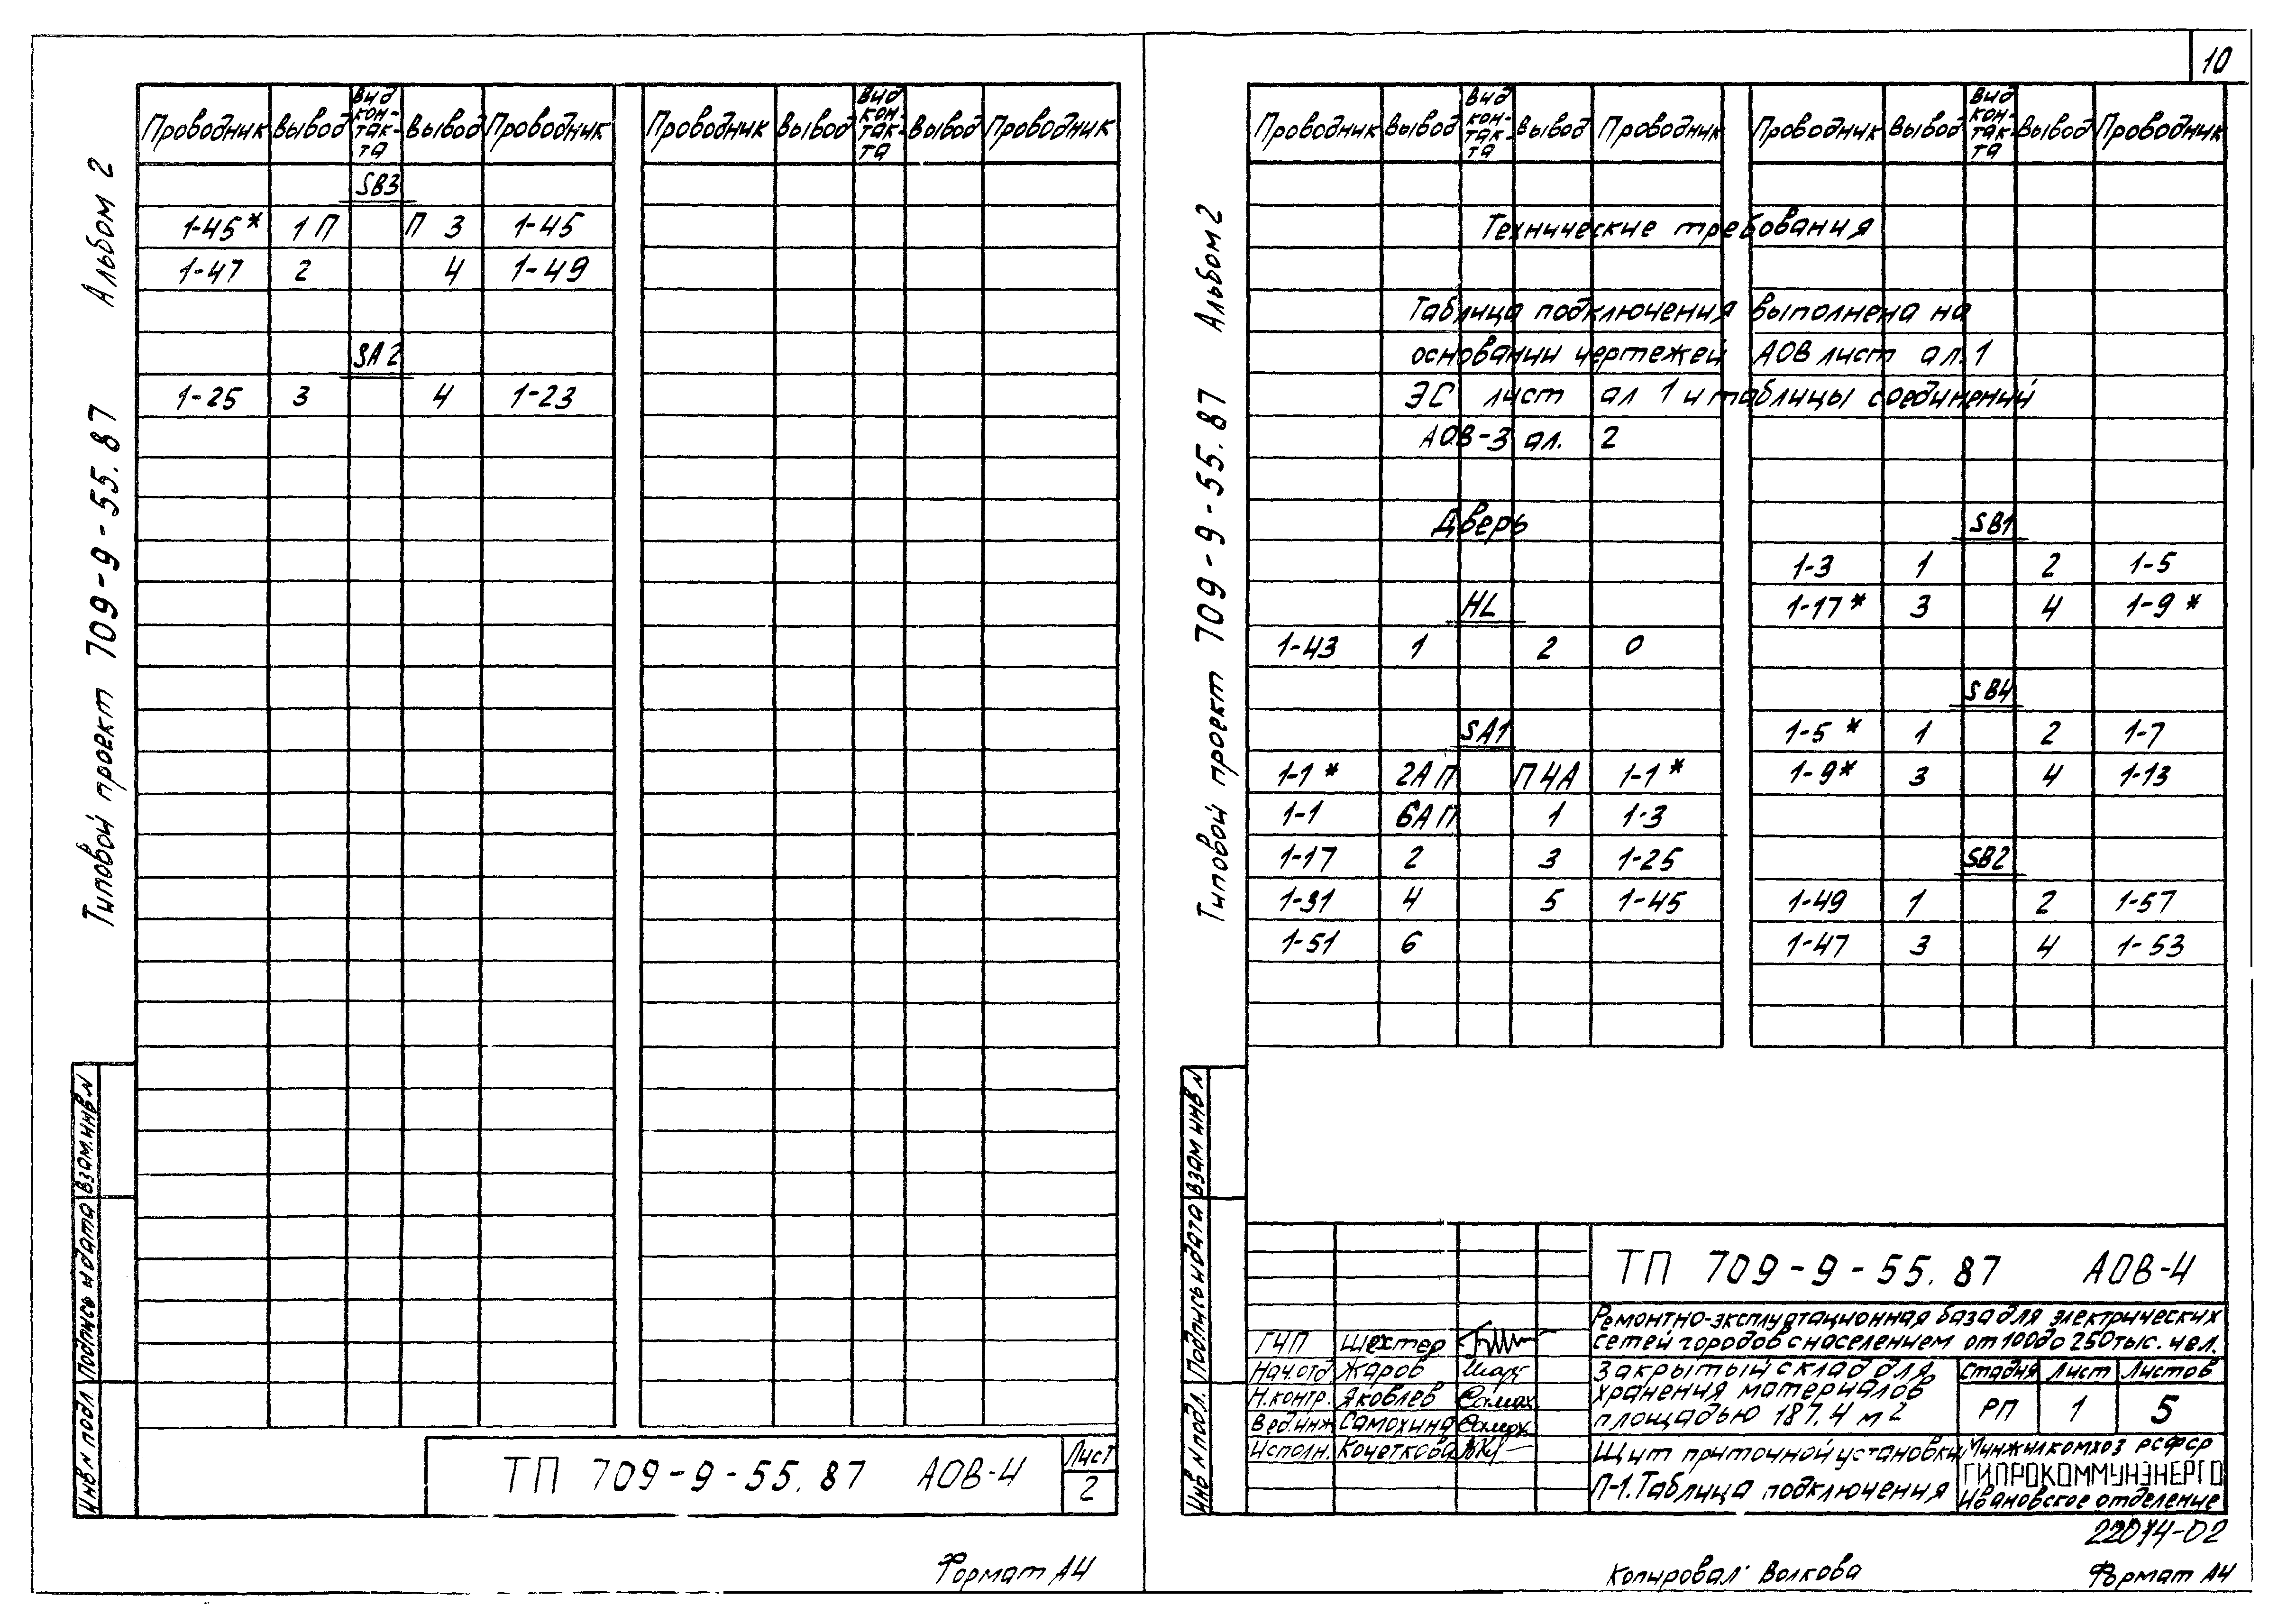 10
Альбом 2
Типовой проект 709-9-55.87
Проводник Вывод Вид кон-так-та Вывод Проводник Проводник Вывод Вид кон-так-та Вывод Проводник
SB3
1-45* 1 П П 3 1-45
1-47 2 4 1-49
SA2
1-25 3 4 1-23
Инв N подл Подпись и дата Взам.инв N
ТП 709-9-55.87 АОВ-4
Лист
2
Формат А4
Альбом 2
Типовой проект 709-9-55.87
Проводник Вывод Вид кон-так-та Вывод Проводник Проводник Вывод Вид кон-так-та Вывод Проводник
Технические требования
Таблица подключения выполнена на
основании чертежей АОВ лист ал.1
ЭС лист ал 1 и таблицы соединений
АОВ-3 ал. 2
Дверь
HL
1-43 1 2 0
SA1
1-1* 2А П П 4А 1-1*
1-1 6А П 1 1-3
1-17 2 3 1-25
1-31 4 5 1-45
1-51 6
SB1
1-3 1 2 1-5
1-17* 3 4 1-9*
SB4
1-5* 1 2 1-7
1-9* 3 4 1-13
SB2
1-49 1 2 1-57
1-47 3 4 1-53
Инв N подл. Подпись и дата Взам инв N
ТП 709-9-55.87 АОВ-4
Ремонтно-эксплуатационная база для электрических
сетей городов с населением от 100 до 250 тыс. чел.
ГИП Шехтер
Нач.отд Жаров
Н.контр. Яковлев
Вед.инж Самохина
Исполн. Кочеткова
Закрытый склад для
хранения материалов
площадью 187.4 м2
Стадия Лист Листов
РП 1 5
Щит приточной установки
П-1. Таблица подключения
Минжилкомхоз РСФСР
ГИПРОКОММУНЭНЕРГО
Ивановское отделение
22074-02
Копировал: Волкова
Формат А4